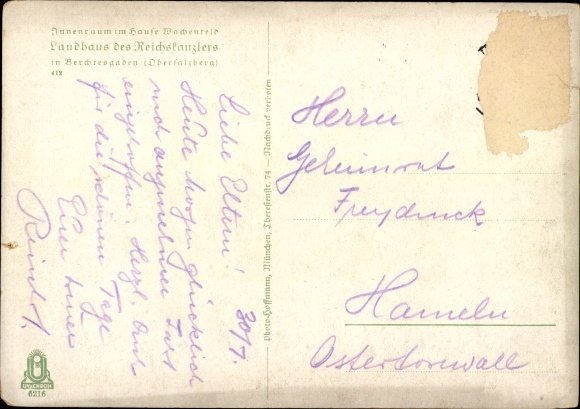 Innenraum im Hause Wachenfeld
Landhaus des Reichskanzlers
in Berchtesgaden (Obersalzberg)
412
30/7.
Liebe Eltern!
Heute Morgen glücklich
nach angenehmer Fahrt
eingetroffen. Herzl. Dank
für die schönen Tage
Euer treuer
Photo-Hoffmann, München, Theresienstr. 74 — Nachdruck verboten
Herrn
Geheimrat
Freydanck
Hameln
Ostertorwall
UVACHROM
6216